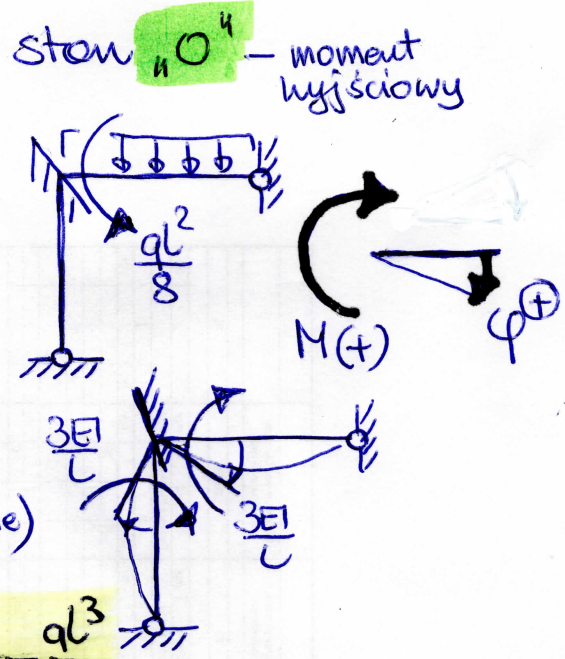 stan „O" – moment
wyjściowy
ql²
8
M(+)
φ⊕
3EI
L
3EI
L
e)
ql³